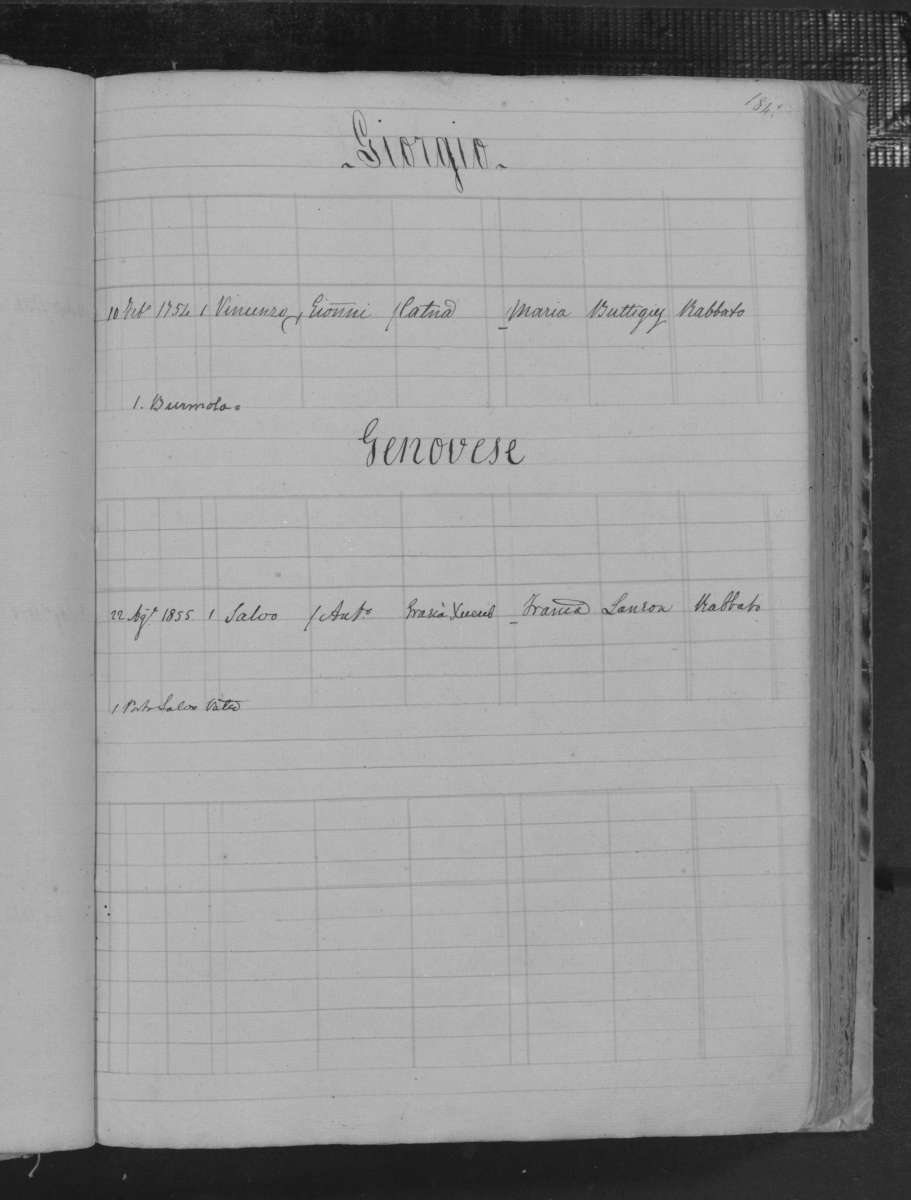 184.
Giorgio
10 1754 1 Vincenzo Gioñni Catna Maria Buttigieg Rabbato
1. Burmola.
Genovese
22 Agt. 1855 1 Salvo Anto. Grazia Xuereb Franca Lanzon Rabbato
1 Porto Salvo